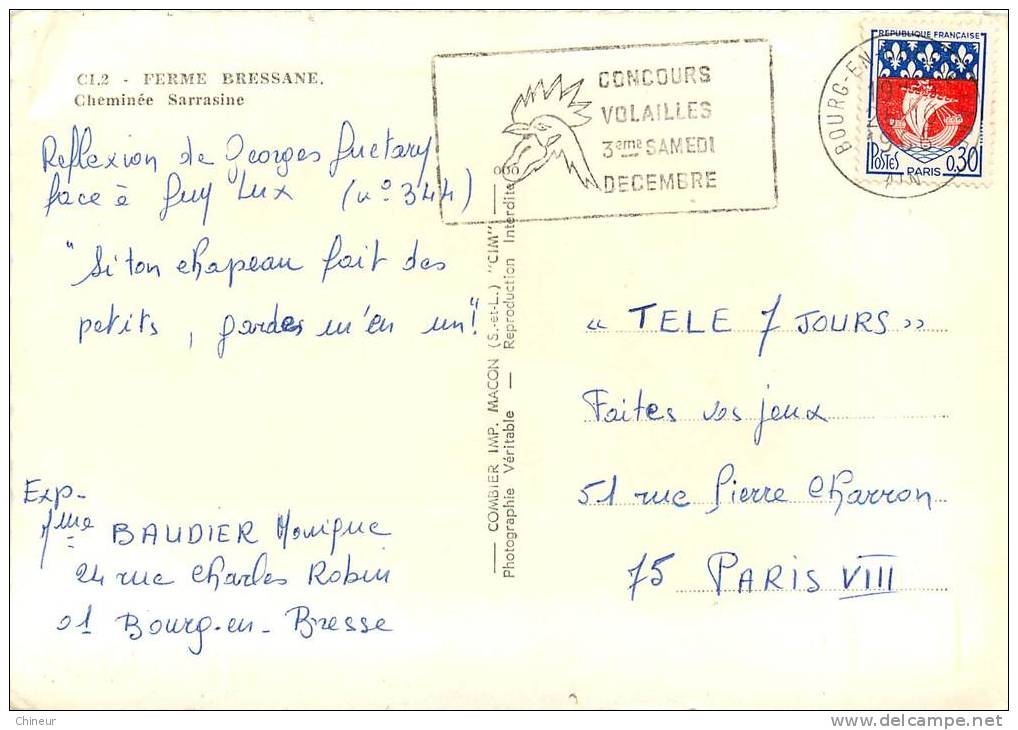 CI.2 - FERME BRESSANE.
Cheminée Sarrasine
Reflexion de Georges Guetary
face à Guy Lux (n° 344)
"Si ton chapeau fait des
petits, gardes m'en un!"
Exp-
Mme BAUDIER Monique
24 rue Charles Robin
01 Bourg-en-Bresse
COMBIER IMP. MACON (S.-et-L.) "CIM"
Photographie Véritable — Reproduction Interdite
CONCOURS
VOLAILLES
3eme SAMEDI
DECEMBRE
BOURG-EN-
AIN
REPUBLIQUE FRANÇAISE
POSTES
0,30
PARIS
« TELE 7 JOURS »
Faites vos jeux
51 rue Pierre Charron
75 PARIS VIII
Chineur
delcampe.net